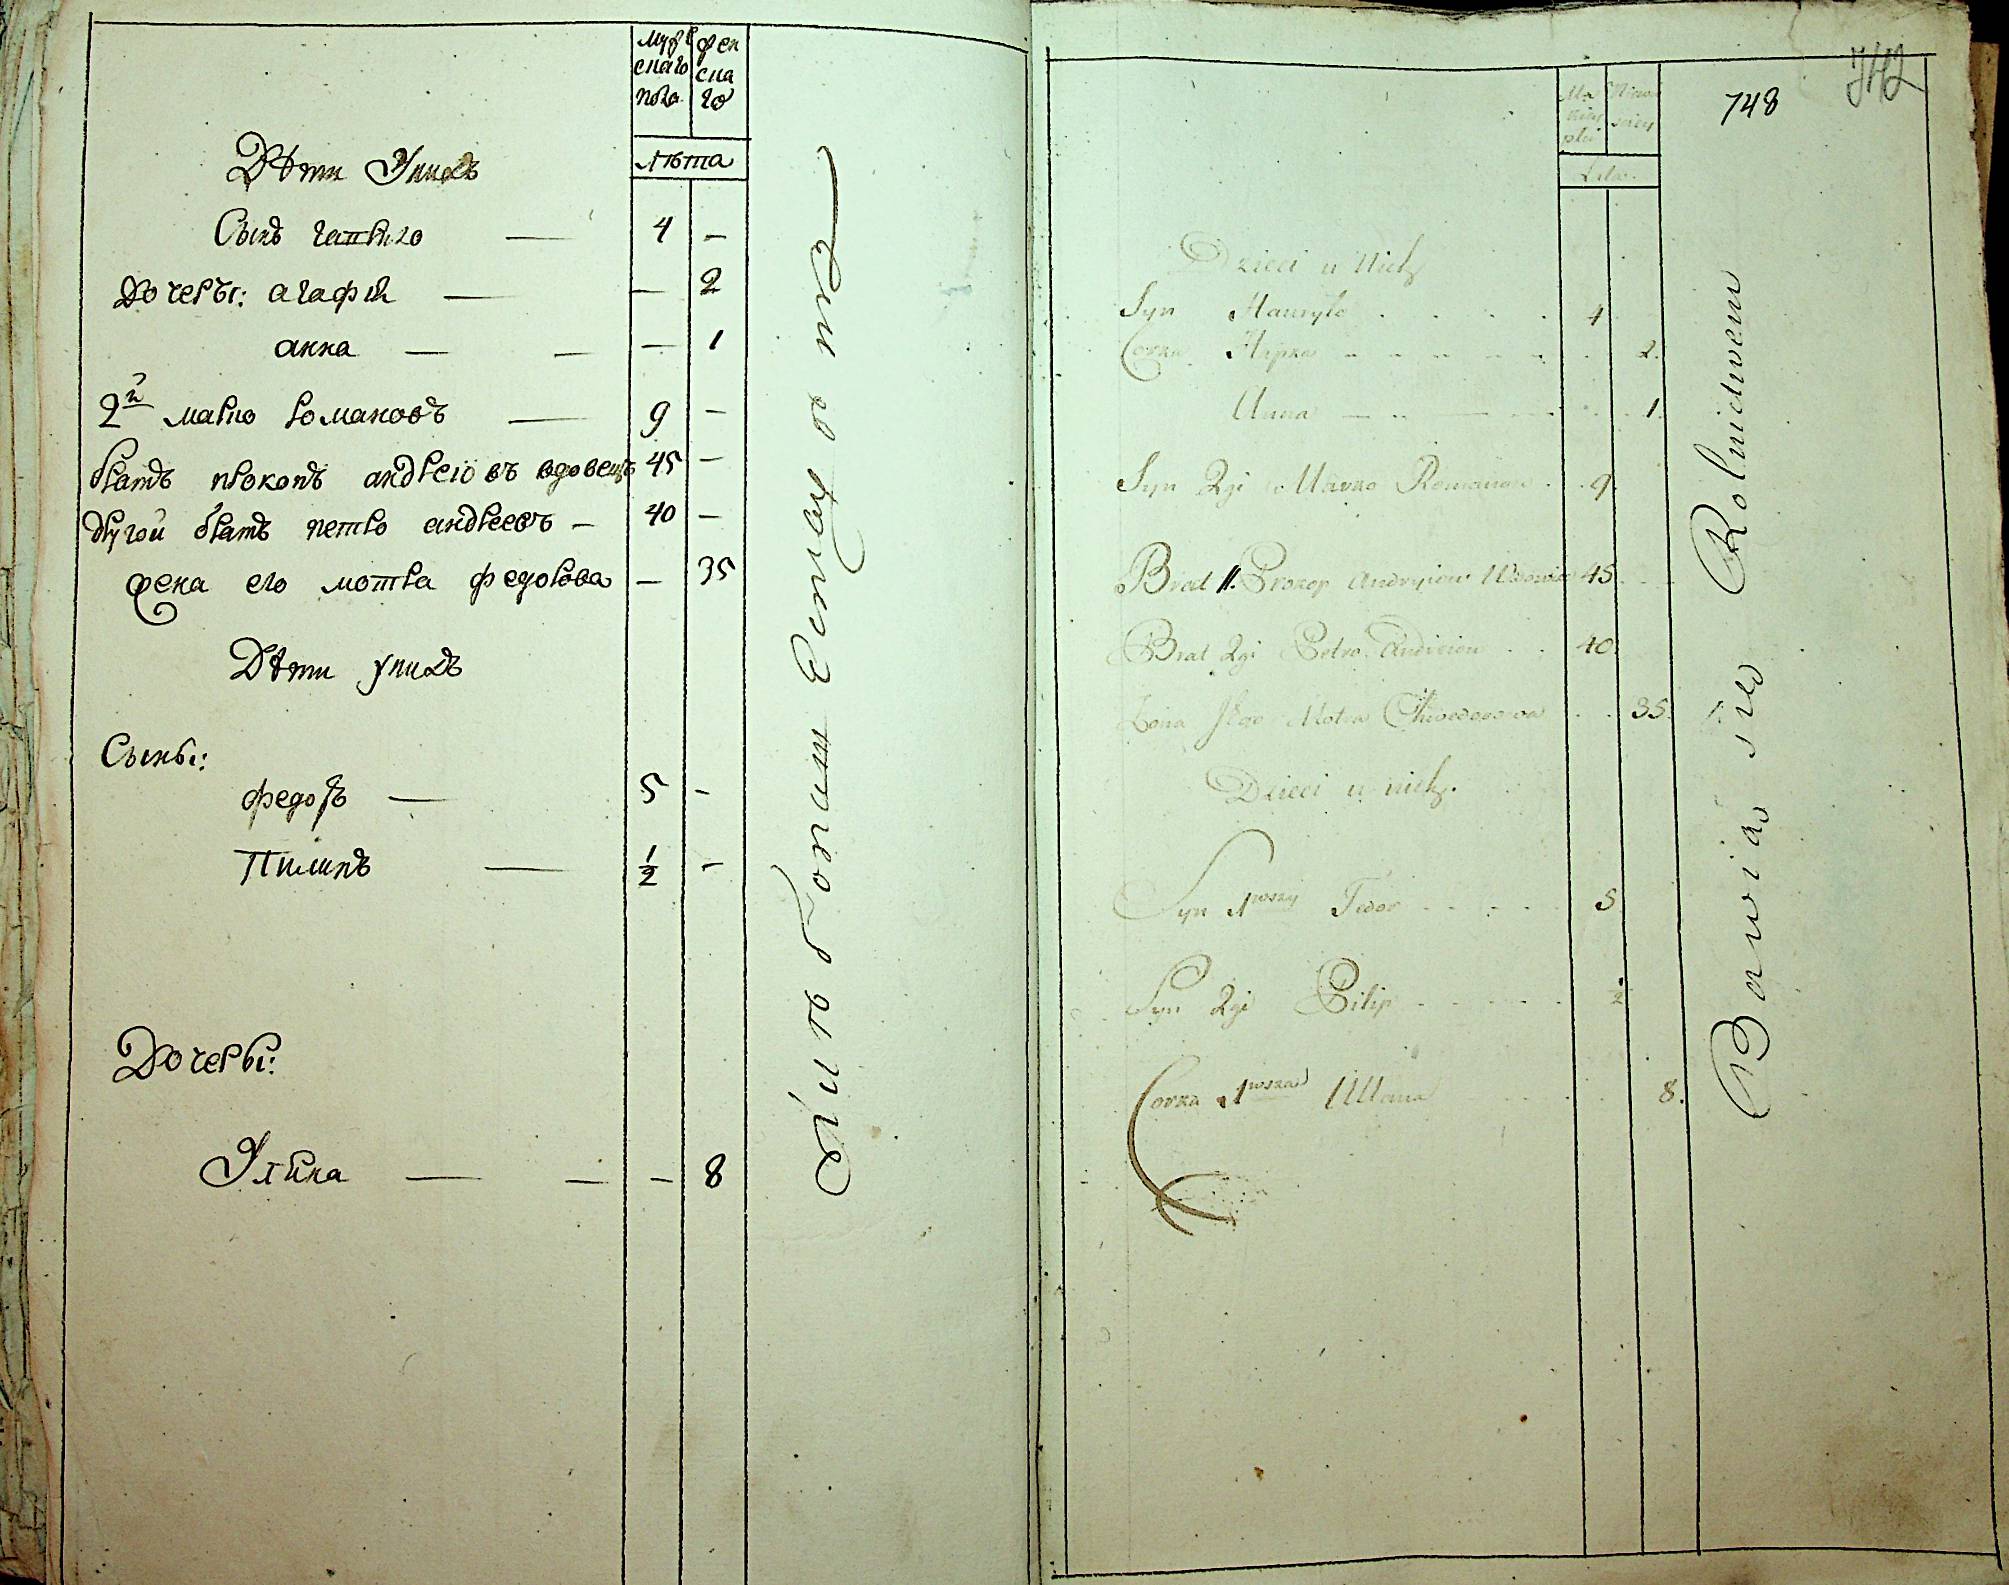 мужескаго пола
женскаго
лѣта
Дѣти У нихъ
Сынъ гаврило — 4 —
Дочеры: агафия — — 2
анна — — — 1
2й марко романовъ — 9 —
братъ прокопъ андреювъ вдовецъ 45 —
другой братъ петро андреевъ — 40 —
жена его мотра федорова — 35
Дѣти у нихъ
Сыны:
федоръ — 5 —
Пилипъ — 1/2 —
Дочеры:
Ульяна — — — 8
748
Lata
Dzieci u Nich
Syn Hawryło 4
Corka Hapka 2.
Anna 1.
Syn 2gi Marko Romanow 9
Brat 1. Prokop Andryiow Wdowiec 45
Brat 2gi Petro Andreiow 40
Żona Jego Motra Chwedorowa 35.
Dzieci u nich.
Syn 1wszy Fedor 5
Syn 2gi Pilip 1/2
Corka 1wsza Ullana 8.
Bawią się Rolnictwem